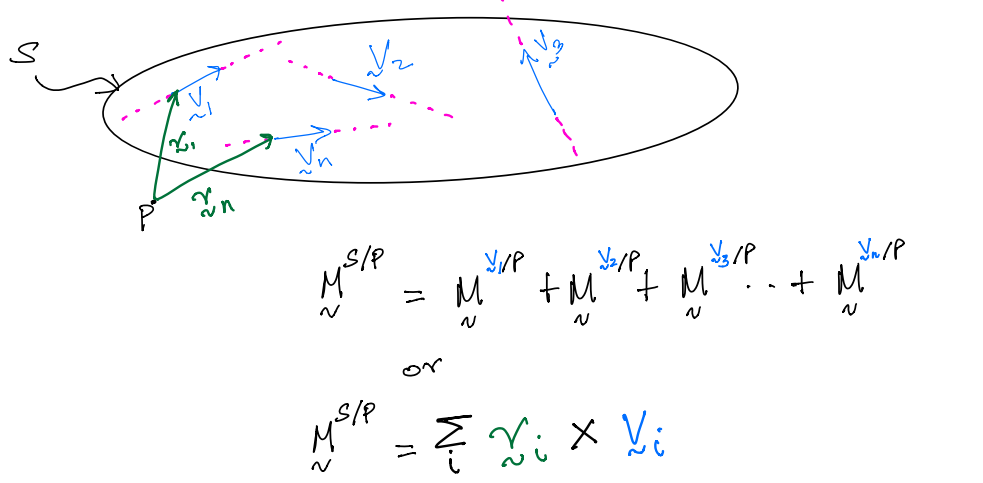 S
V₃
V₂
V₁
r₁
Vₙ
rₙ
P
M^{S/P} = M^{V₁/P} + M^{V₂/P} + M^{V₃/P} ... + M^{Vₙ/P}
or
M^{S/P} = Σᵢ rᵢ × Vᵢ